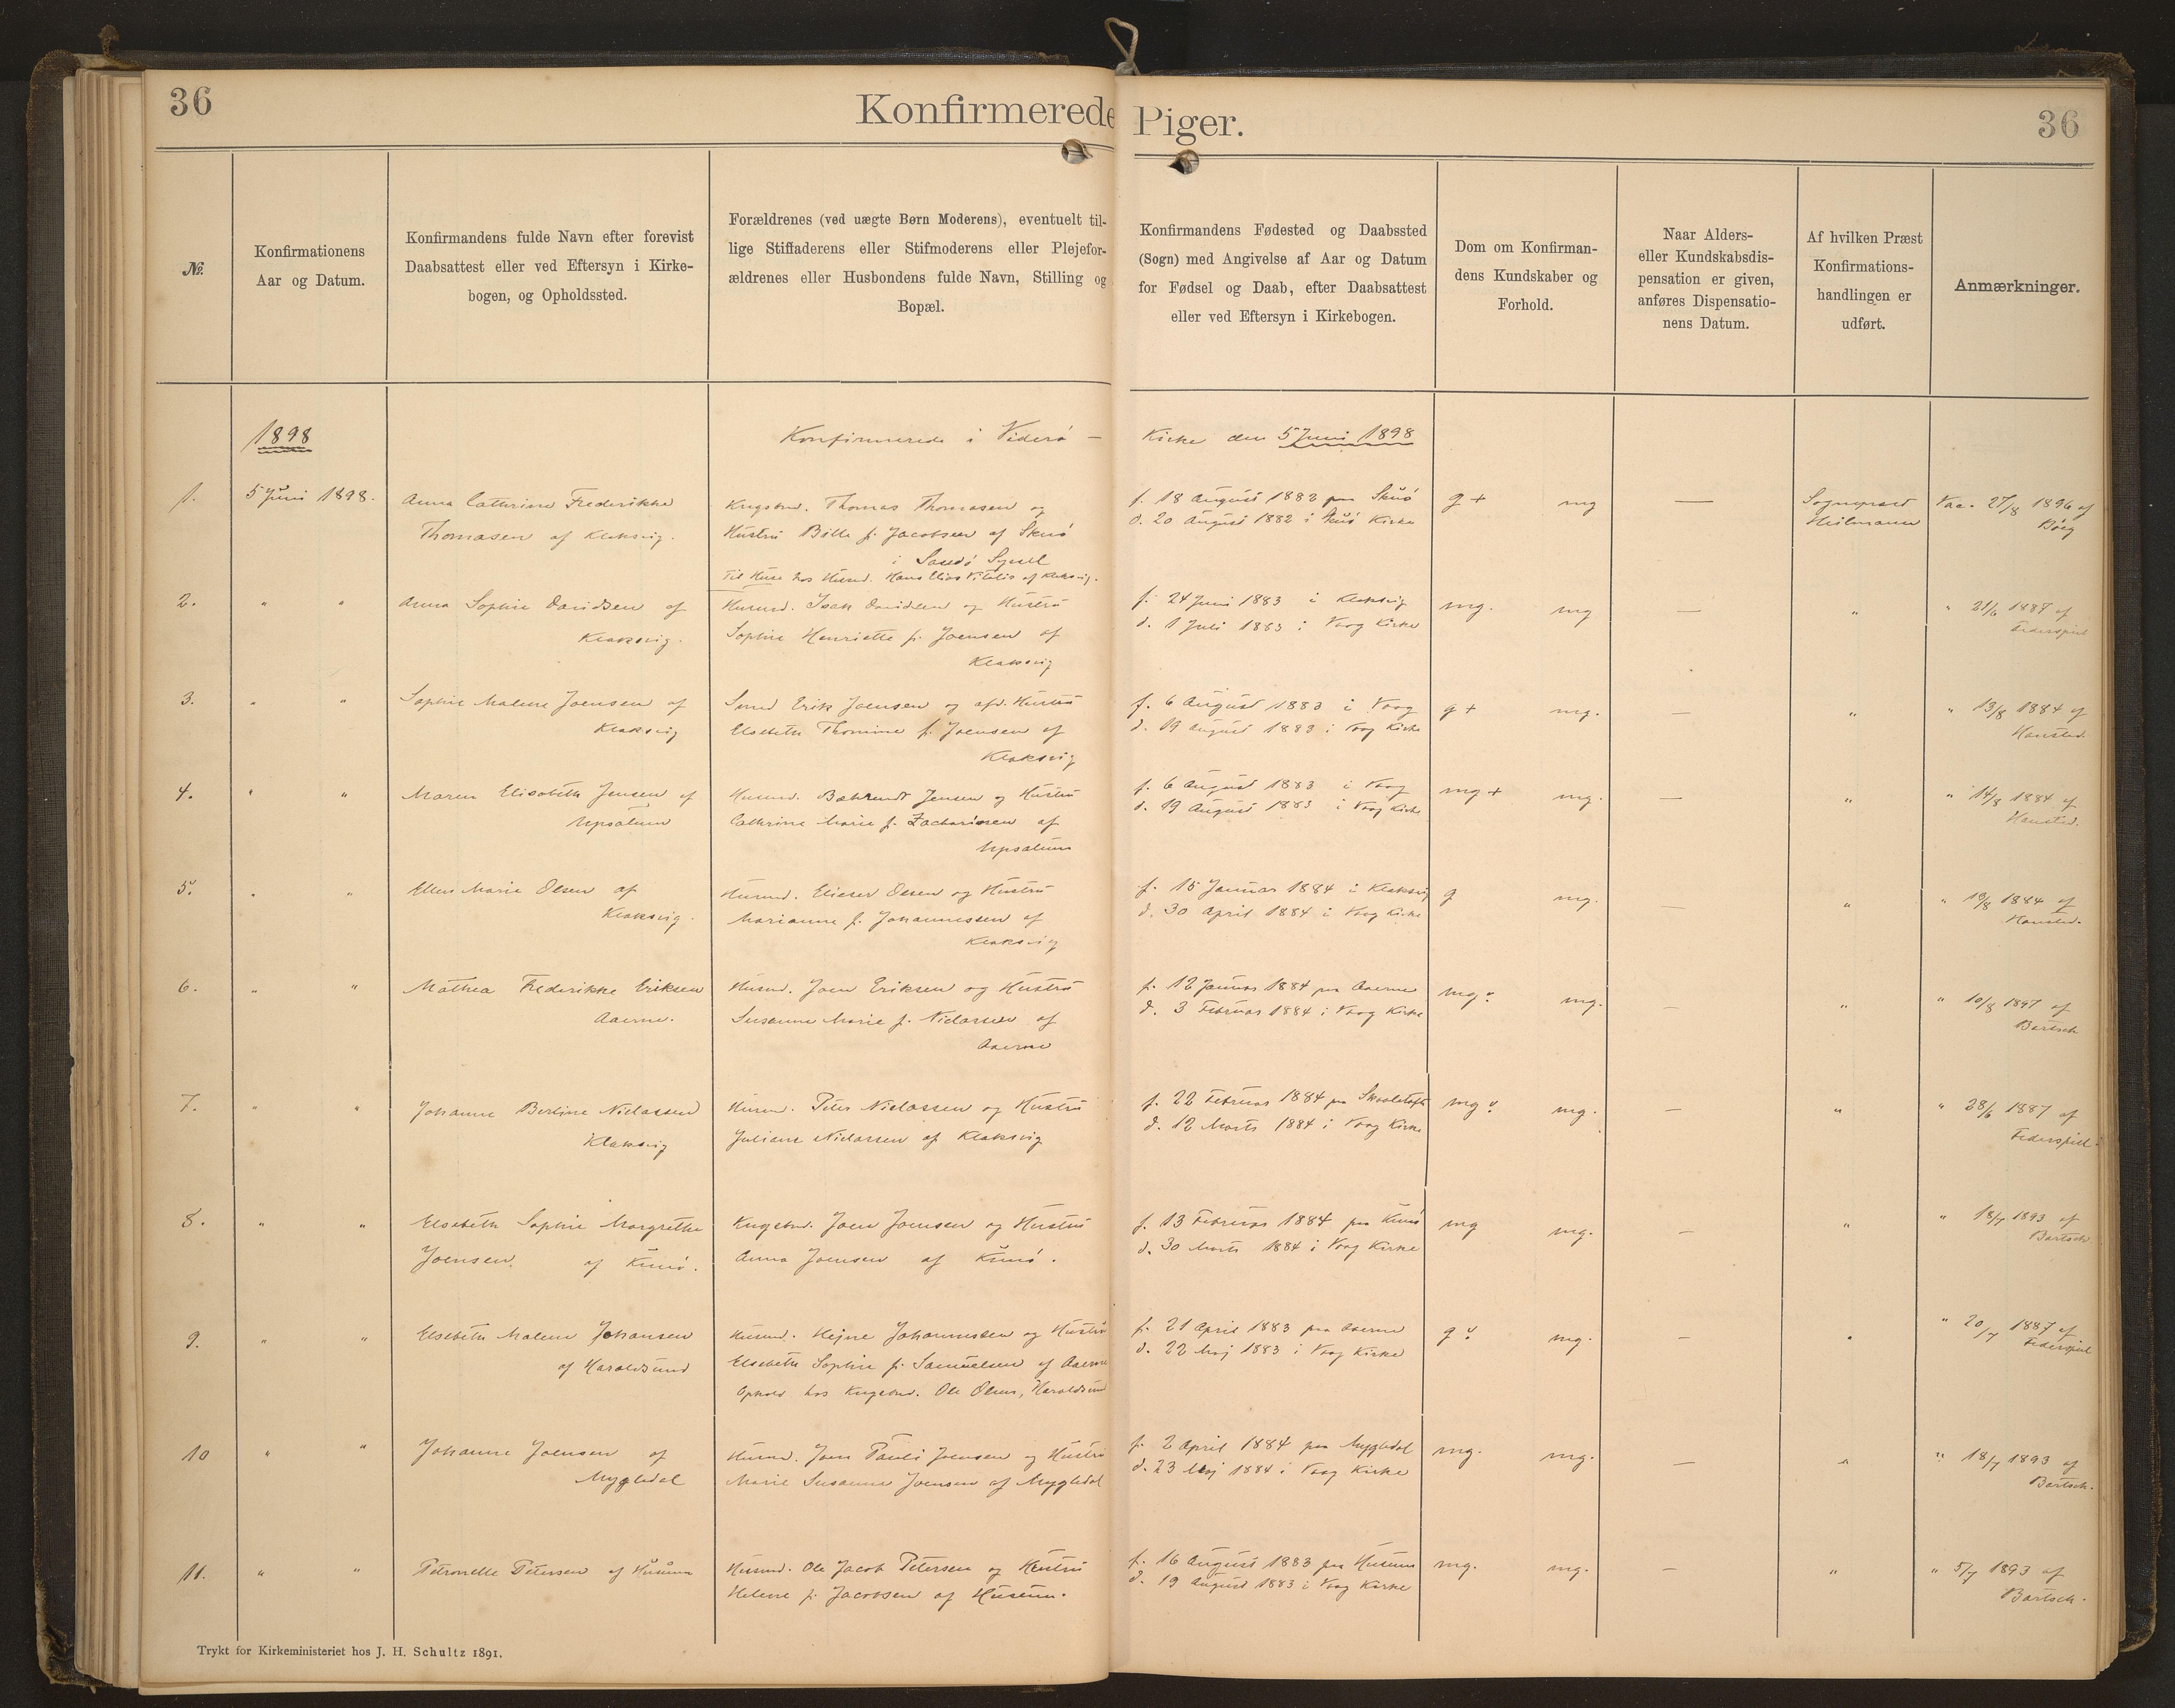 36
Konfirmerede Piger.
36
№
Konfirmationens
Aar og Datum.
Konfirmandens fulde Navn efter forevist
Daabsattest eller ved Eftersyn i Kirke-
bogen, og Opholdssted.
Forældrenes (ved uægte Børn Moderens), eventuelt til-
lige Stiffaderens eller Stifmoderens eller Plejefor-
ældrenes eller Husbondens fulde Navn, Stilling og
Bopæl.
Konfirmandens Fødested og Daabssted
(Sogn) med Angivelse af Aar og Datum
for Fødsel og Daab, efter Daabsattest
eller ved Eftersyn i Kirkebogen.
Dom om Konfirman-
dens Kundskaber og
Forhold.
Naar Alders-
eller Kundskabsdis-
pensation er given,
anføres Dispensatio-
nens Datum.
Af hvilken Præst
Konfirmations-
handlingen er
udført.
Anmærkninger.
1898
Konfirmerede i Viderø - Kirke den 5 Juni 1898
1.
5 Juni 1898.
Anna Cathrine Frederikke
Thomasen af Klaksvig.
Kngsbd. Thomas Thomasen og
Hustru Bille f. Jacobsen af Skuø
i Sandø Syssel
Til Huse hos Husmd. Hans Elias Vitalis af Klaksvig.
f. 18 August 1882 paa Skuø
d. 20 August 1882 i Skuø Kirke
g + mg
—
Sognepræst
Heilmann
Vac. 27/8 1896 af
Bøeg
2.
" "
Anna Sophie Davidsen af
Klaksvig.
Husmd. Isak Davidsen og Hustru
Sophie Henriette f. Joensen af
Klaksvig
f. 24 Juni 1883 i Klaksvig
d. 1 Juli 1883 i Vaag Kirke
mg. mg
—
"
" 21/6 1887 af
Federspiel
3.
" "
Sophie Malene Joensen af
Klaksvig
Smed Erik Joensen og afd. Hustru
Elsebeth Thomine f. Joensen af
Klaksvig
f. 6 August 1883 i Vaag
d. 19 August 1883 i Vaag Kirke
g + mg.
—
"
" 13/8 1884 af
Hansted.
4.
" "
Maren Elisabeth Jensen af
Upsalum
Husmd. Bahrendt Jensen og Hustru
Cathrine Marie f. Zachariasen af
Upsalum
f. 6 August 1883 i Vaag
d. 19 August 1883 i Vaag Kirke
mg + mg.
—
"
" 14/8 1884 af
Hansted.
5.
" "
Ellen Marie Olsen af
Klaksvig.
Husmd. Elieser Olsen og Hustru
Marianne f. Johannessen af
Klaksvig
f. 15 Januar 1884 i Klaksvig
d. 30 April 1884 i Vaag Kirke
g mg.
—
"
" 19/8 1884 af
Hansted.
6.
" "
Mathea Frederikke Eriksen
Aaerne.
Husmd. Joen Eriksen og Hustru
Susanne Marie f. Niclassen af
Aaerne
f. 12 Januar 1884 paa Aaerne
d. 3 Februar 1884 i Vaag Kirke
mg mg.
—
"
" 10/8 1897 af
Bartsch
7.
" "
Johanne Bertine Niclassen
Klaksvig
Husmd. Peter Niclassen og Hustru
Juliane Niclassen af Klaksvig
f. 22 Februar 1884 paa Skaaletoft
d. 12 Marts 1884 i Vaag Kirke
mg mg.
—
"
" 28/6 1887 af
Federspiel.
8.
" "
Elsebeth Sophie Margrethe
Joensen. af Kunø.
Kngsbd. Joen Joensen og Hustru
Anna Joensen af Kunø.
f. 13 Februar 1884 paa Kunø
d. 30 Marts 1884 i Vaag Kirke
mg mg.
—
"
" 18/7 1893 af
Bartsch
9.
" "
Elsebeth Malene Johansen
af Haraldsund
Husmd. Hejne Johannessen og Hustru
Elsebeth Sophie f. Samuelsen af Aaerne
Ophold hos Kngsbd. Ole Olsen, Haraldsund
f. 21 April 1883 paa Aaerne
d. 22 Maj 1883 i Vaag Kirke
g mg.
—
"
" 20/7 1887 af
Federspiel
10
" "
Johanne Joensen af
Mygledal
Husmd. Joen Pauli Joensen og Hustru
Marie Susanne Joensen af Mygledal
f. 2 April 1884 paa Mygledal
d. 23 Maj 1884 i Vaag Kirke
mg. mg.
—
"
" 18/7 1893 af
Bartsch.
11.
" "
Petronelle Petersen af Husum
Husmd. Ole Jacob Petersen og Hustru
Helene f. Jacobsen af Husum.
f. 16 August 1883 paa Husum
d. 19 August 1883 i Vaag Kirke
mg. mg.
—
"
" 5/7 1893 af
Bartsch.
Trykt for Kirkeministeriet hos J. H. Schultz 1891.